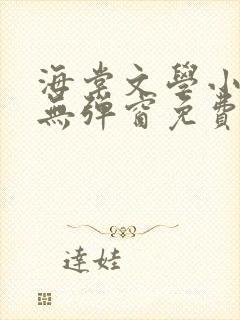 海棠文學小
無彈窗免費
達娃